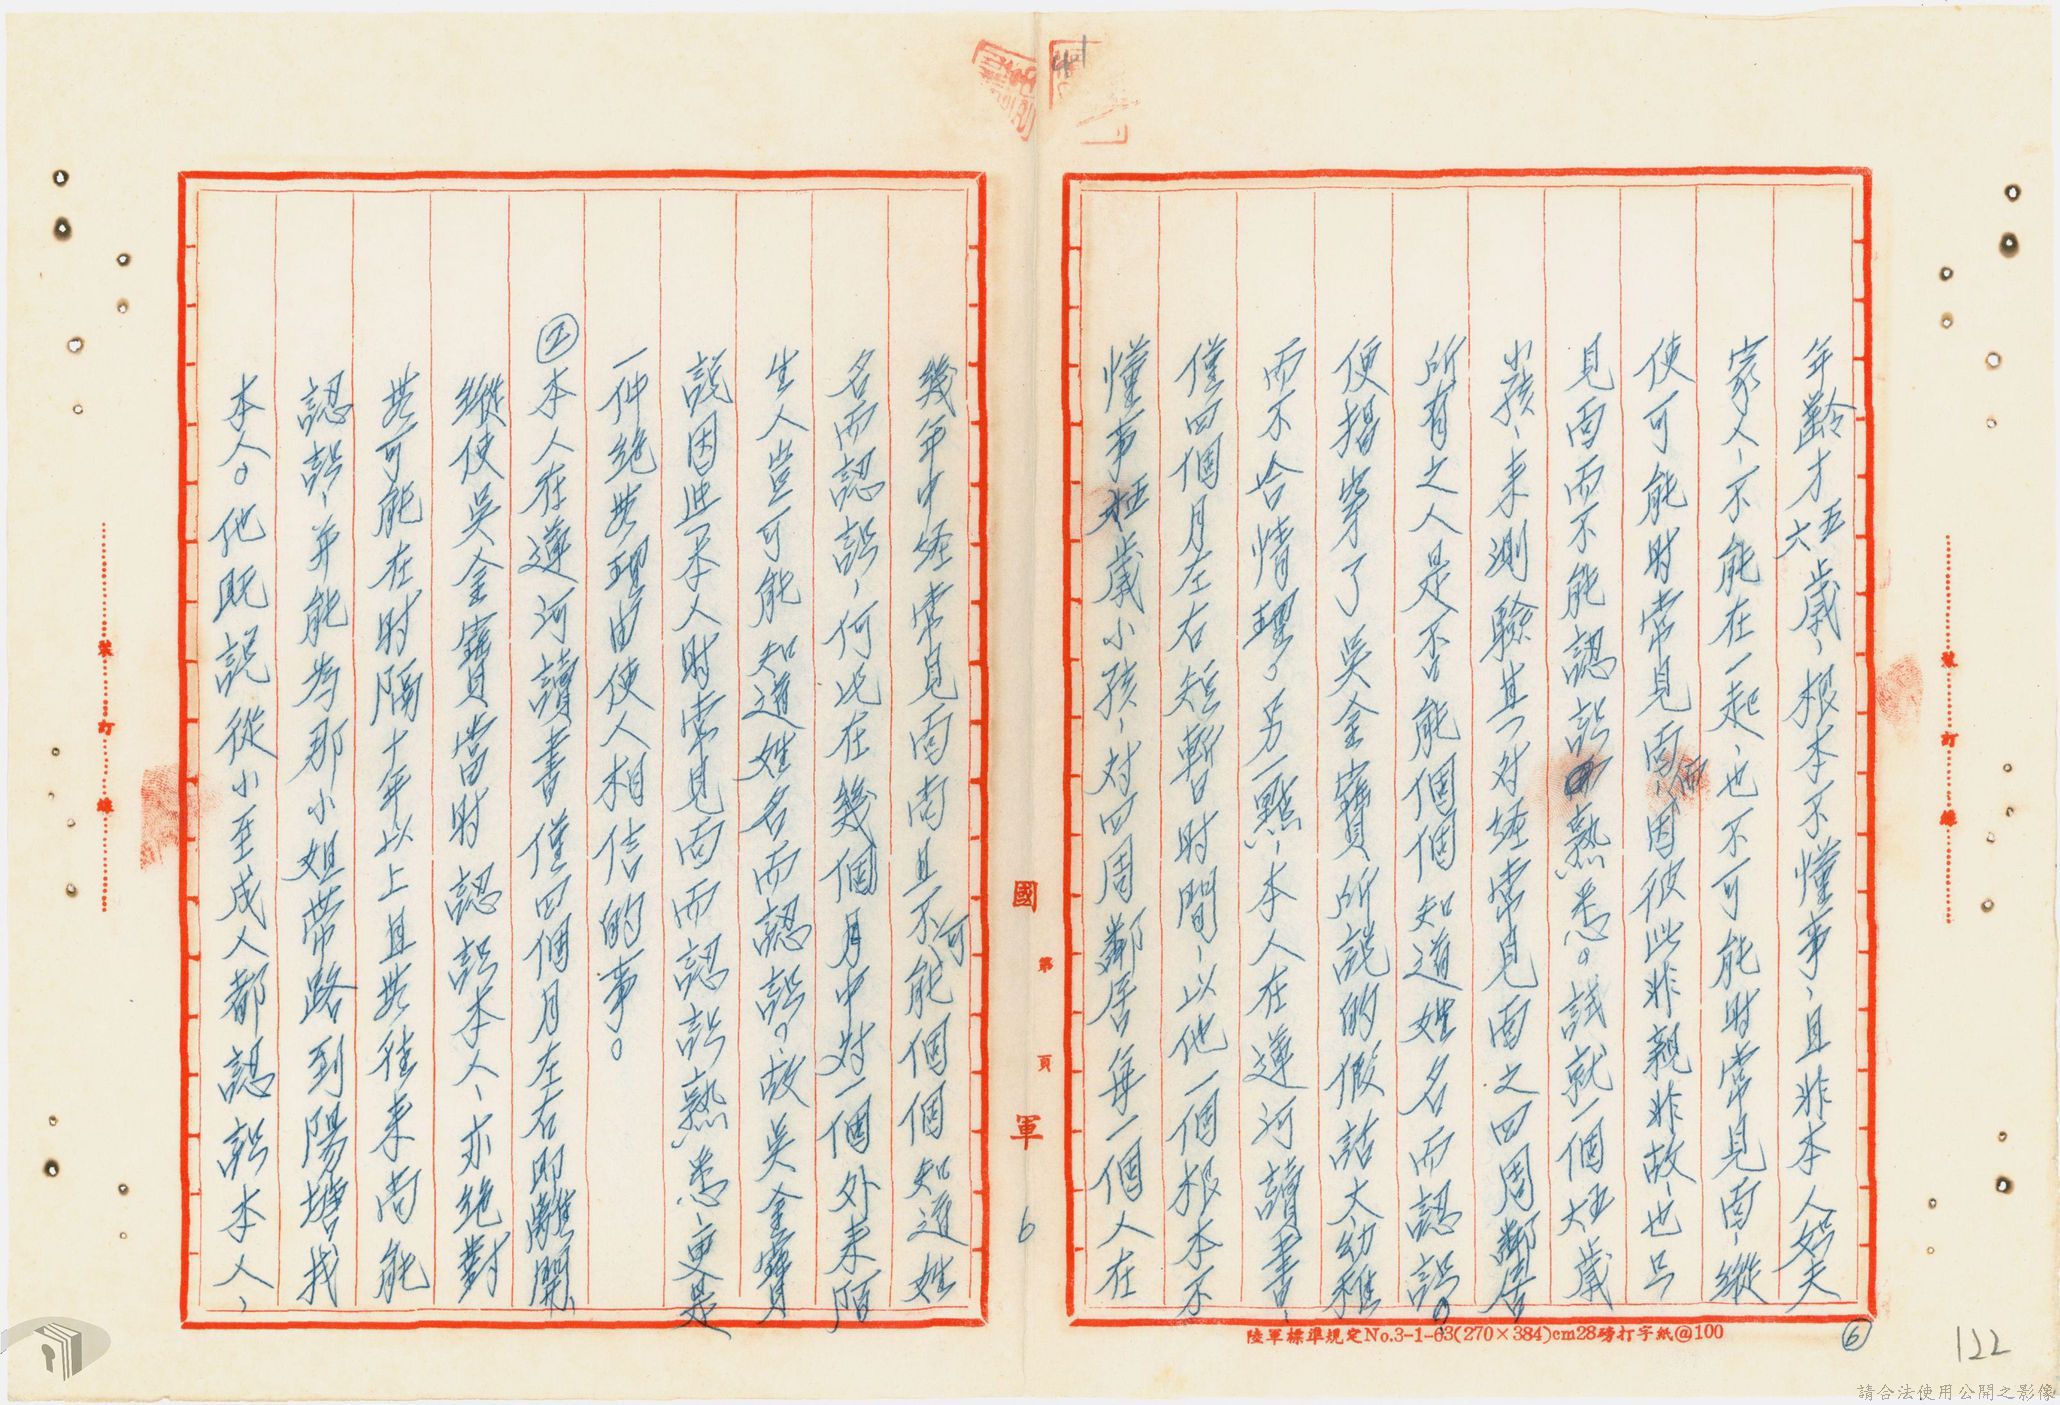 年齡才五六歲、根本不懂事、且非本人舅夫
家人、不能在一起、也不可能時常見面、縱
使可能时常見面、但因彼此非親非故、也只
見面而不能認識熟悉。試就一個五六歲
小孩、来測驗其一对经常見面之四周鄰居
所有之人是否能個個知道姓名而認識。
便揭穿了吳金寶所說的假話太幼稚
而不合情理。另一點、本人在蓮河讀書、
僅四個月左右短暫时間、以他一個根本不
懂事五歲小孩、对四周鄰居每一個人在
幾年中经常見面尚且不可能個個知道姓
名而認識、何况在幾個月中对一個外来陌
生人豈可能知道姓名而認識。故吳金寶
說因此與本人时常見面而認識熟悉、更是
一件绝無理由使人相信的事。
②本人在蓮河讀書僅四個月左右即離開、
縱使吳金寶當时認識本人、亦绝對
無可能在时隔十年以上且無往来尚能
認識、并能為那小姐帶路到陽塘找
本人。他既說從小至成人都認識本人、
國 第 頁 軍
6
裝 訂 線
裝 訂 線
陸軍標準規定No.3-1-63(270×384)cm28磅打字紙@100
⑥
122
請合法使用公開之影像